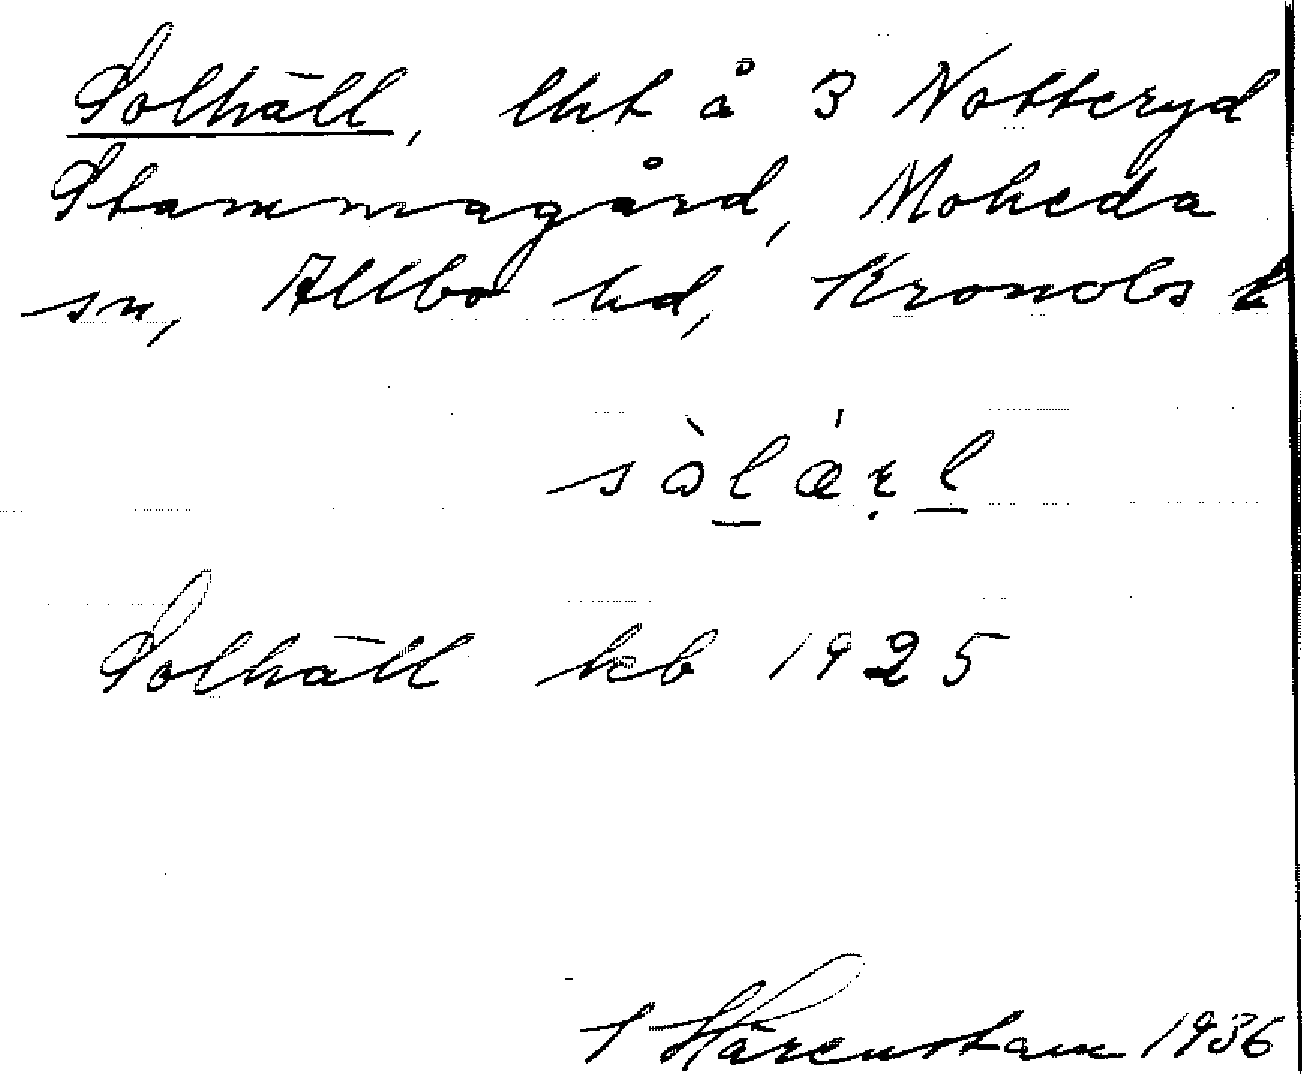 Solhäll, lht å 3 Notteryd
Stammagård, Moheda
sn, Allbo hd, Kronobs l
Solhäll kb 1925
Härenstam 1936